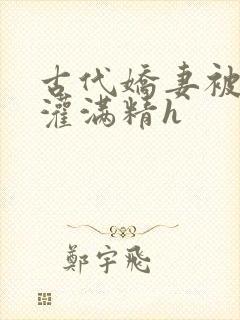 古代嬌妻被
灌滿精h
鄭宇飛